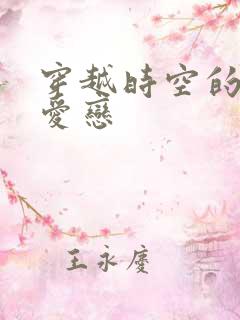 穿越時空的
愛戀
王永慶